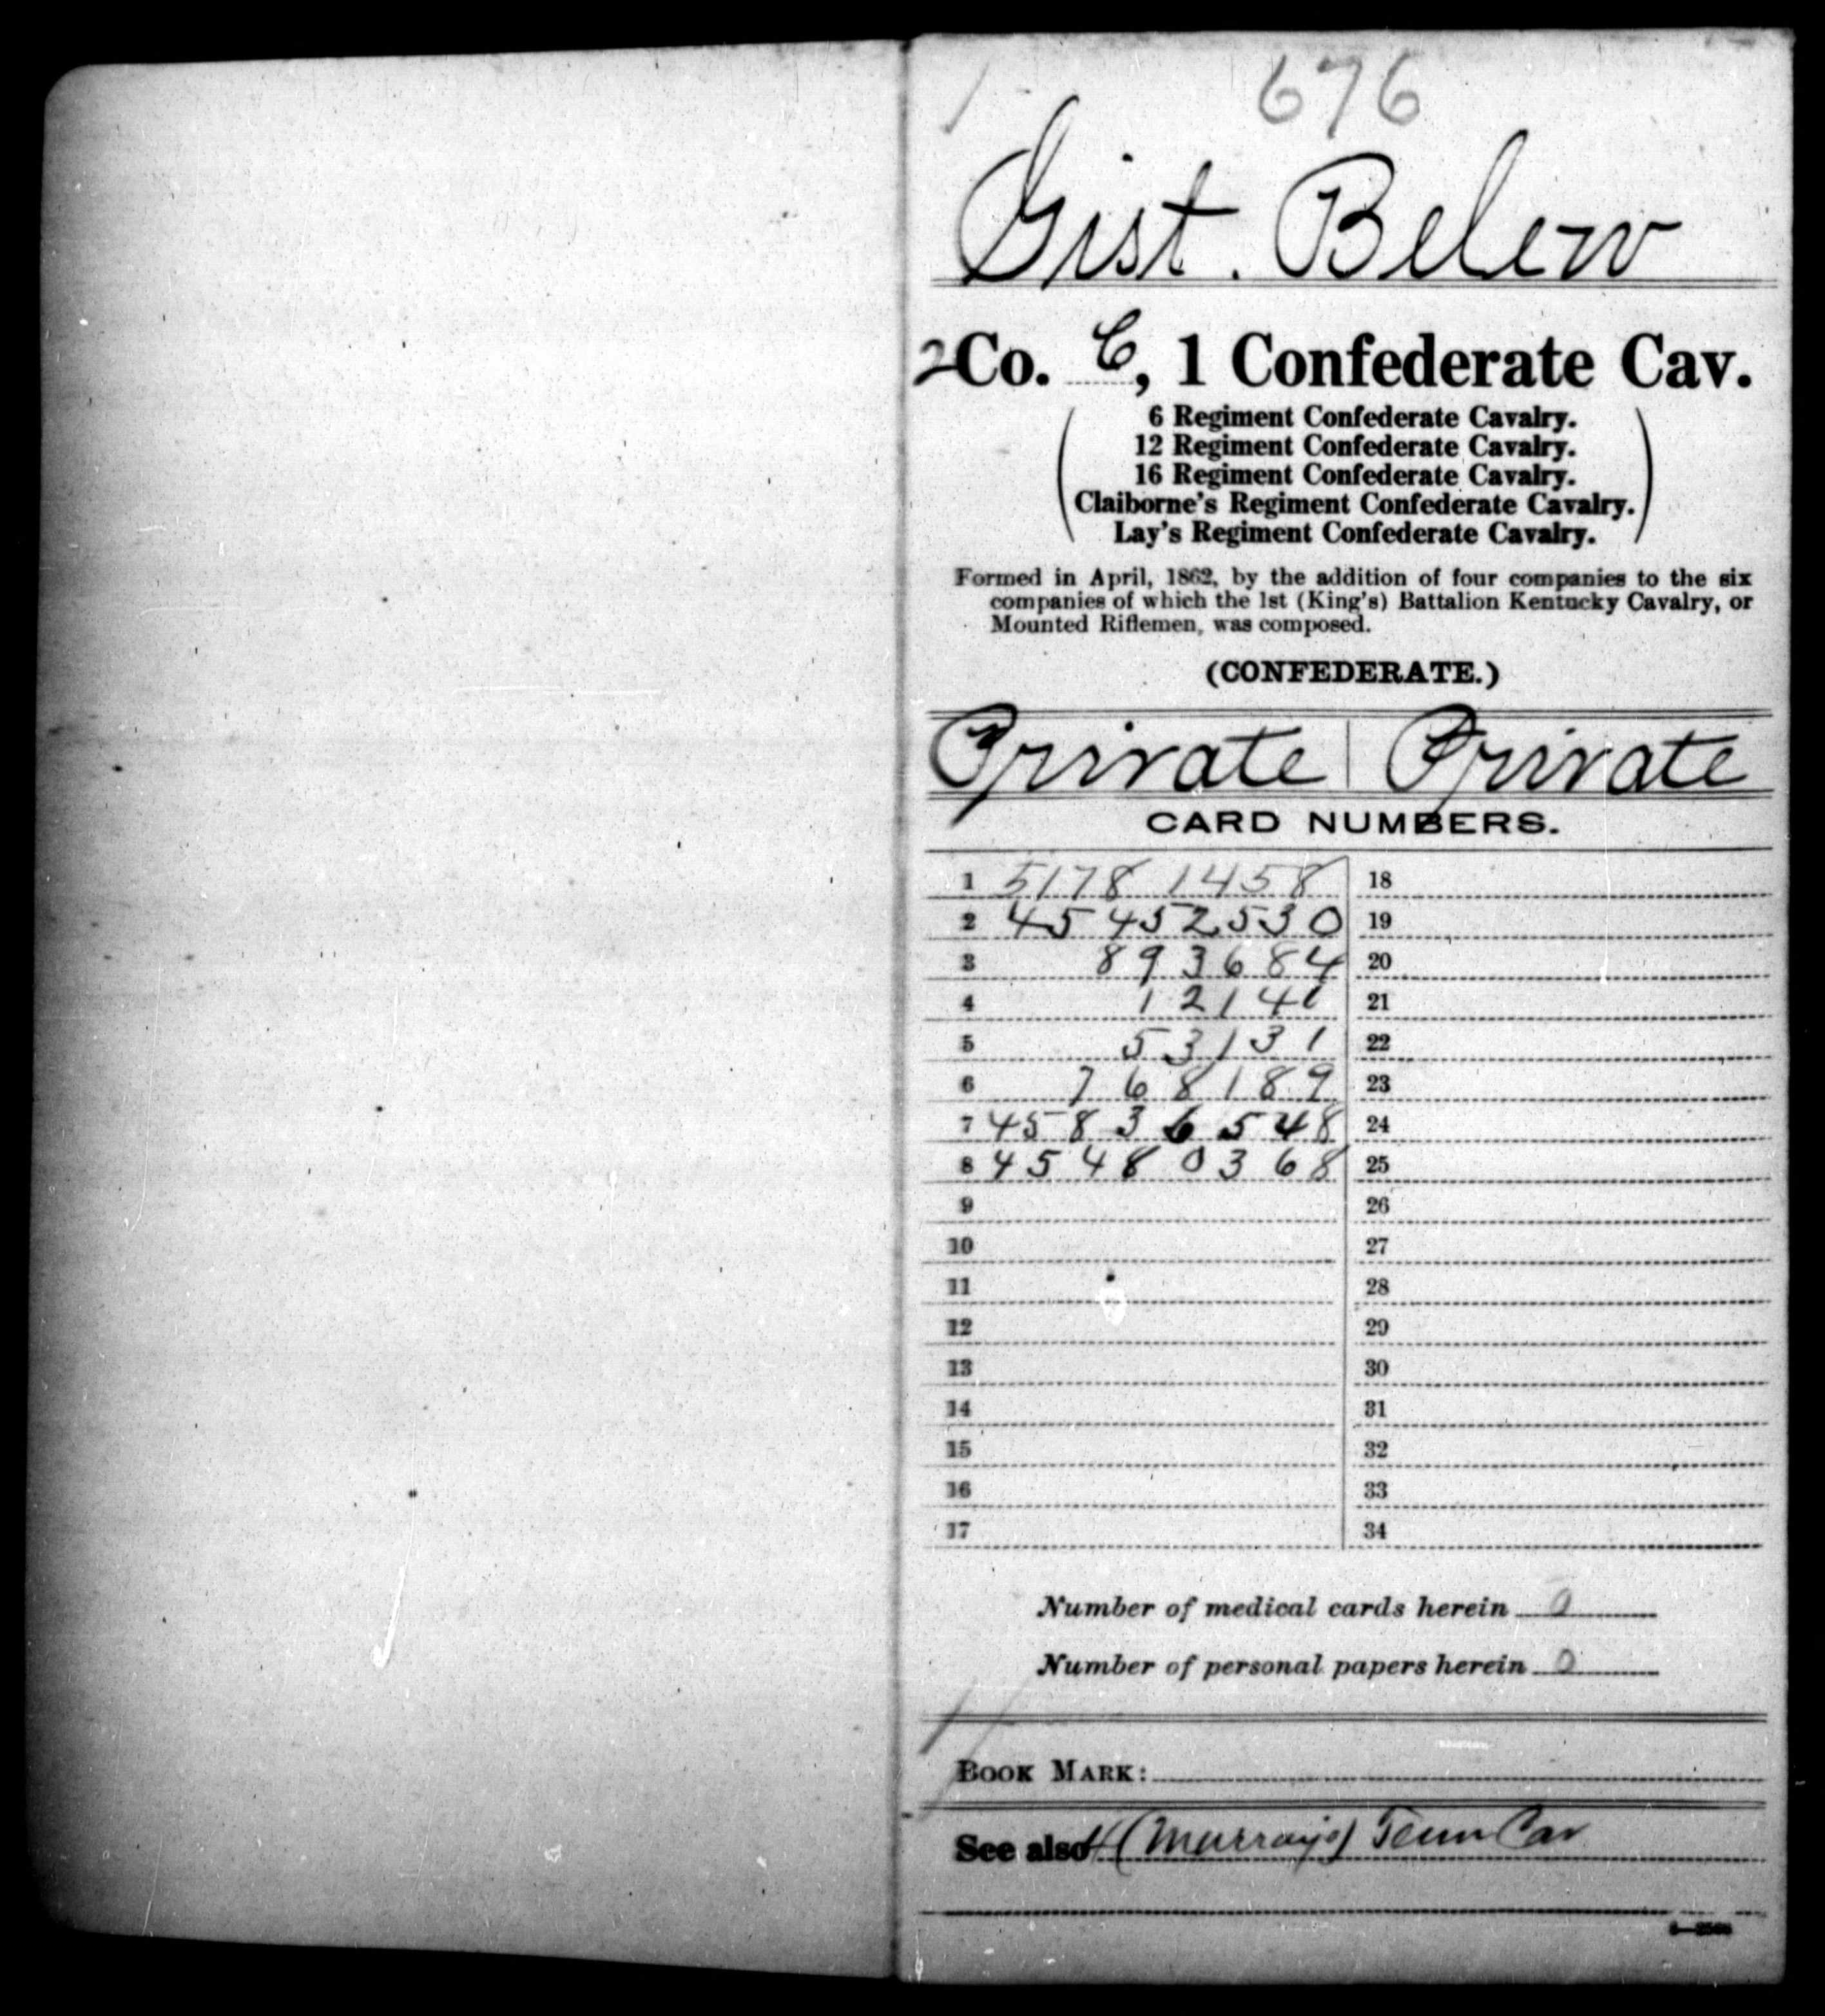 676
Gist. Belew
2 Co. C, 1 Confederate Cav.
6 Regiment Confederate Cavalry.
12 Regiment Confederate Cavalry.
16 Regiment Confederate Cavalry.
Claiborne's Regiment Confederate Cavalry.
Lay's Regiment Confederate Cavalry.
Formed in April, 1862, by the addition of four companies to the six
companies of which the 1st (King's) Battalion Kentucky Cavalry, or
Mounted Riflemen, was composed.
(CONFEDERATE.)
Private | Private
CARD NUMBERS.
1 51781458 18
2 45452530 19
3 893684 20
4 12141 21
5 53131 22
6 768189 23
7 45836548 24
8 45480368 25
9 26
10 27
11 28
12 29
13 30
14 31
15 32
16 33
17 34
Number of medical cards herein 0
Number of personal papers herein 0
BOOK MARK:
See also 4 (Murray's) Tenn Cav